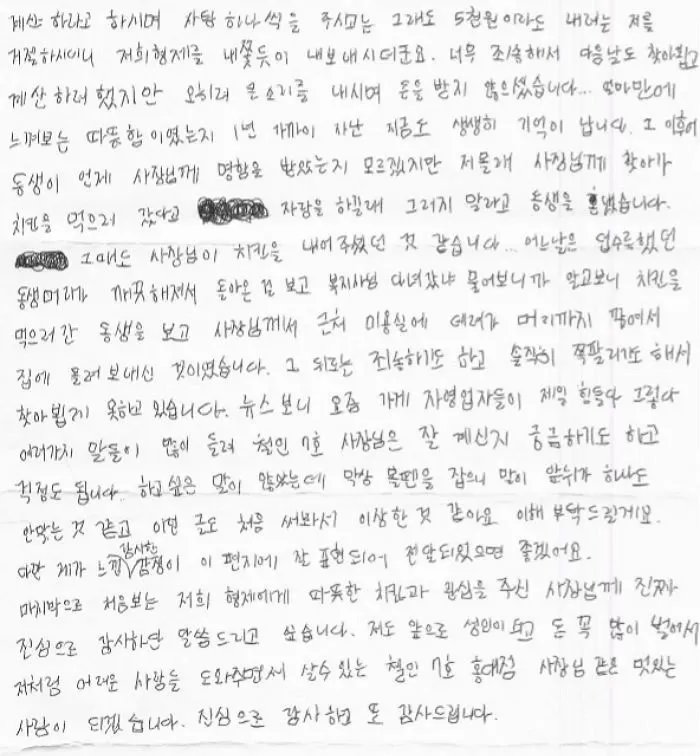 계산하라고 하시며 사탕 하나씩을 주시고는 그래도 5천원이라도 내려는 저를
거절하시더니 저희 형제를 내쫓듯이 내보내시더군요. 너무 죄송해서 다음날도 찾아뵙고
계산하려 했지만 오히려 큰 소리를 내시며 돈을 받지 않으셨습니다... 얼마만에
느껴보는 따뜻함이였는지 1년 가까이 지난 지금도 생생히 기억이 납니다. 그 이후에
동생이 언제 사장님께 명함을 받았는지 모르겠지만 저몰래 사장님께 찾아가
치킨을 먹으러 갔다고 자랑을 하길래 그러지 말라고 동생을 혼냈습니다.
그때도 사장님이 치킨을 내어주셨던 것 같습니다... 어느날은 덥수룩했던
동생머리가 깨끗해져서 돌아온 걸 보고 복지사님 다녀갔냐 물어보니까 알고보니 치킨을
먹으러간 동생을 보고 사장님께서 근처 미용실에 데려가 머리까지 깎여서
집에 돌려보내신 것이였습니다. 그 뒤로는 죄송하기도 하고 솔직히 쪽팔리기도 해서
찾아뵙지 못하고 있습니다. 뉴스보니 요즘 가게 자영업자들이 제일 힘들다 그렇다
여러가지 말들이 많이 들려 철인 7호 사장님은 잘 계신지 궁금하기도 하고
걱정도 됩니다.. 하고싶은 말이 많았는데 막상 볼펜을 잡으니 말이 앞뒤가 하나도
안맞는 것 같고 이런 글도 처음 써봐서 이상한 것 같아요. 이해 부탁드릴게요.
다만 제가 느낀 감사한 감정이 이 편지에 잘 표현되어 전달되었으면 좋겠어요.
마지막으로 처음보는 저희 형제에게 따뜻한 치킨과 관심을 주신 사장님께 진짜
진심으로 감사하단 말씀 드리고 싶습니다. 저도 앞으로 성인이 되고 돈 꼭 많이 벌어서
저처럼 어려운 사람들 도와주면서 살수 있는 철인 7호 홍대점 사장님 같은 멋있는
사람이 되겠습니다. 진심으로 감사하고 또 감사드립니다.